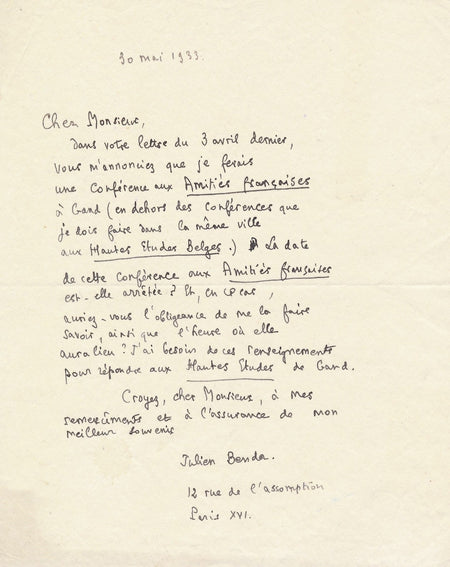 30 mai 1933.
Cher Monsieur,
Dans votre lettre du 3 avril dernier,
vous m'annonciez que je ferais
une conférence aux Amitiés françaises
à Gand (en dehors des conférences que
je dois faire dans la même ville
aux Hautes Etudes Belges.) La date
de cette conférence aux Amitiés françaises
est-elle arrêtée? Et, en ce cas,
auriez-vous l'obligeance de me la faire
savoir, ainsi que l'heure où elle
aura lieu? J'ai besoin de ces renseignements
pour répondre aux Hautes Etudes de Gand.
Croyez, cher Monsieur, à mes
remerciements et à l'assurance de mon
meilleur souvenir
Julien Benda.
12 rue de l'assomption
Paris XVI.